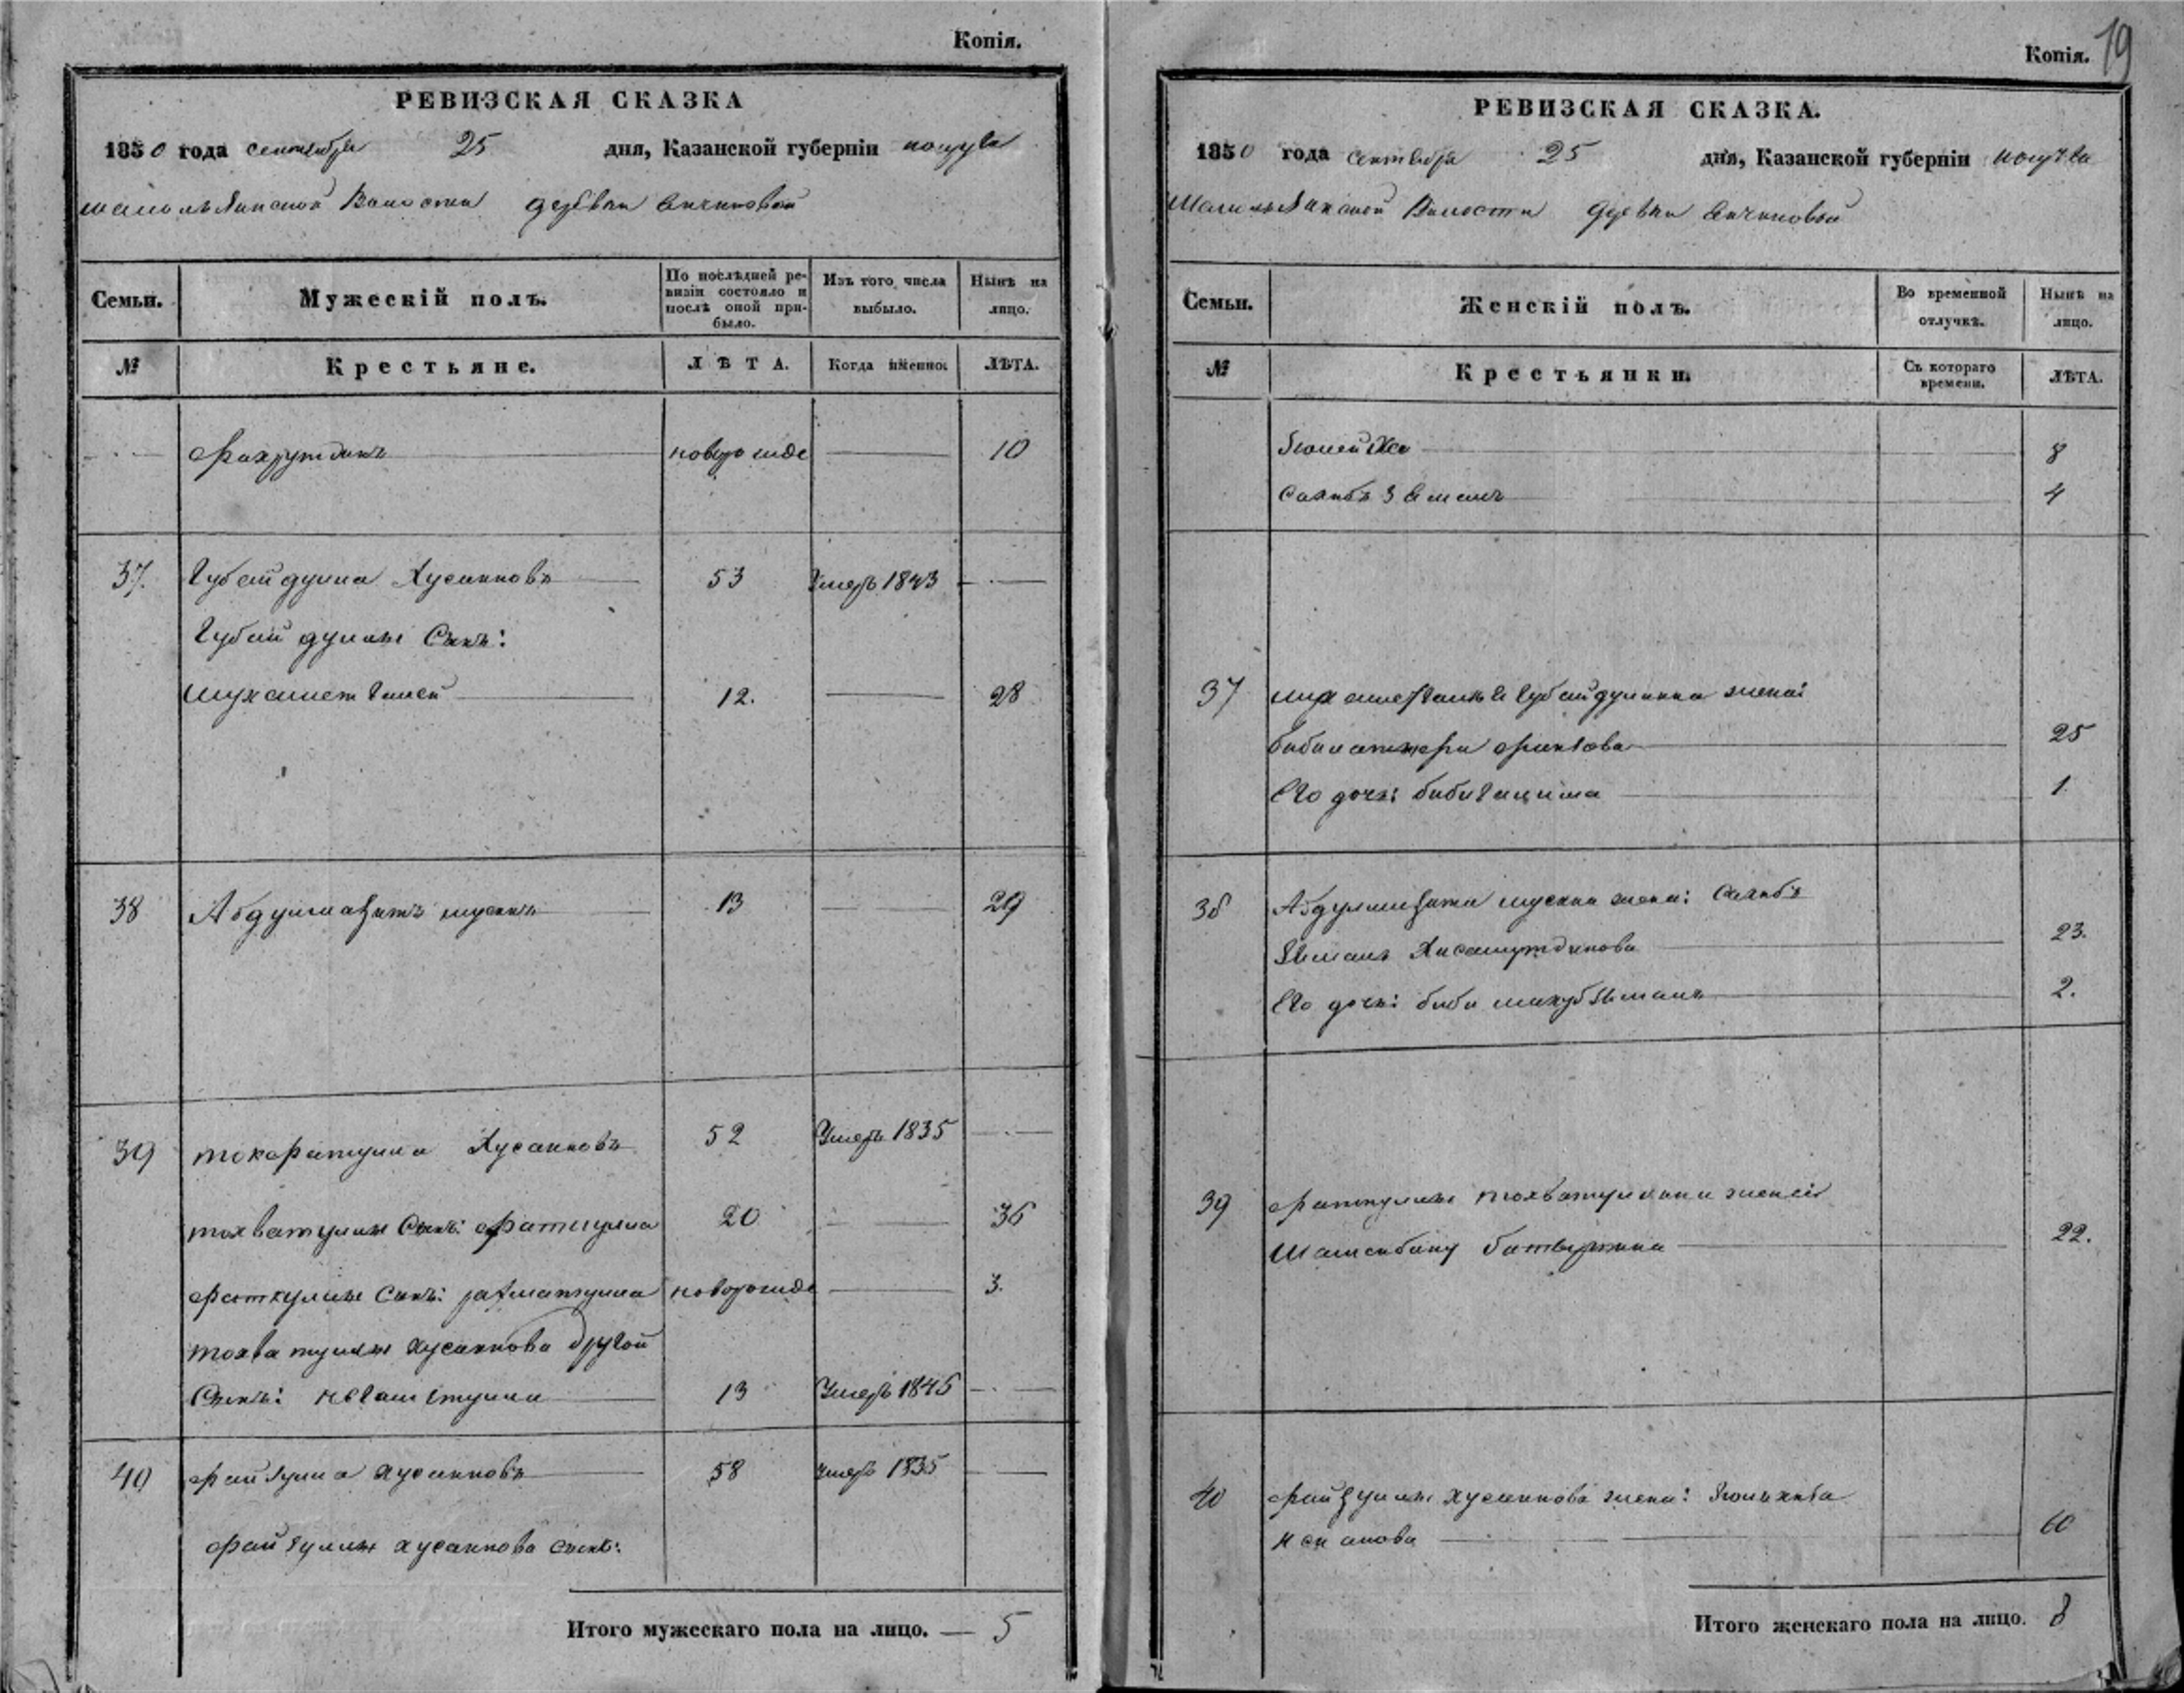 Копія.
РЕВИЗСКАЯ СКАЗКА
1850 года сентября 25 дня, Казанской губерніи
Волости деревни
Семьи. Мужескій полъ. По послѣдней ревизіи состояло и послѣ оной прибыло. Изъ того числа выбыло. Нынѣ на лицо.
№ Крестьяне. ЛѢТА. Когда именно. ЛѢТА.
Фахрутдинъ новорожде 10
37. Губайдулла Хусаиновъ 53 Умеръ 1843
Губайдуллы Сынъ:
Мухаметгалей 12. 28
38 Абдулмазитъ Мусинъ 13 29
39 Тохфатулла Хусаиновъ 52 Умеръ 1835
Тохватуллы Сынъ: Фаткулла 20 36
Фаткуллы Сынъ: Рахматулла новорожде 3.
Тохватуллы Хусаинова другой
Сынъ: 13 Умеръ 1845
40 Файзулла Хусаиновъ 58 умеръ 1835
Файзуллы Хусаинова сынъ:
Итого мужескаго пола на лицо. — 5
19
Копія.
РЕВИЗСКАЯ СКАЗКА.
1850 года сентября 25 дня, Казанской губерніи
Волости деревни
Семьи. Женскій полъ. Во временной отлучкѣ. Нынѣ на лицо.
№ Крестьянки. Съ котораго времени. ЛѢТА.
8
Сахибъ Земалъ 4
37 Губайдуллина жена:
25
Его дочь: 1
38 Абдулмазита Мусина жена: Сахибъ
Земалъ Хисамутдинова 23.
Его дочь: Биби 2.
39 Фаткуллы Тохватуллина жена:
Шамсибану 22.
40 Файзуллы Хусаинова жена:
60
Итого женскаго пола на лицо. 8